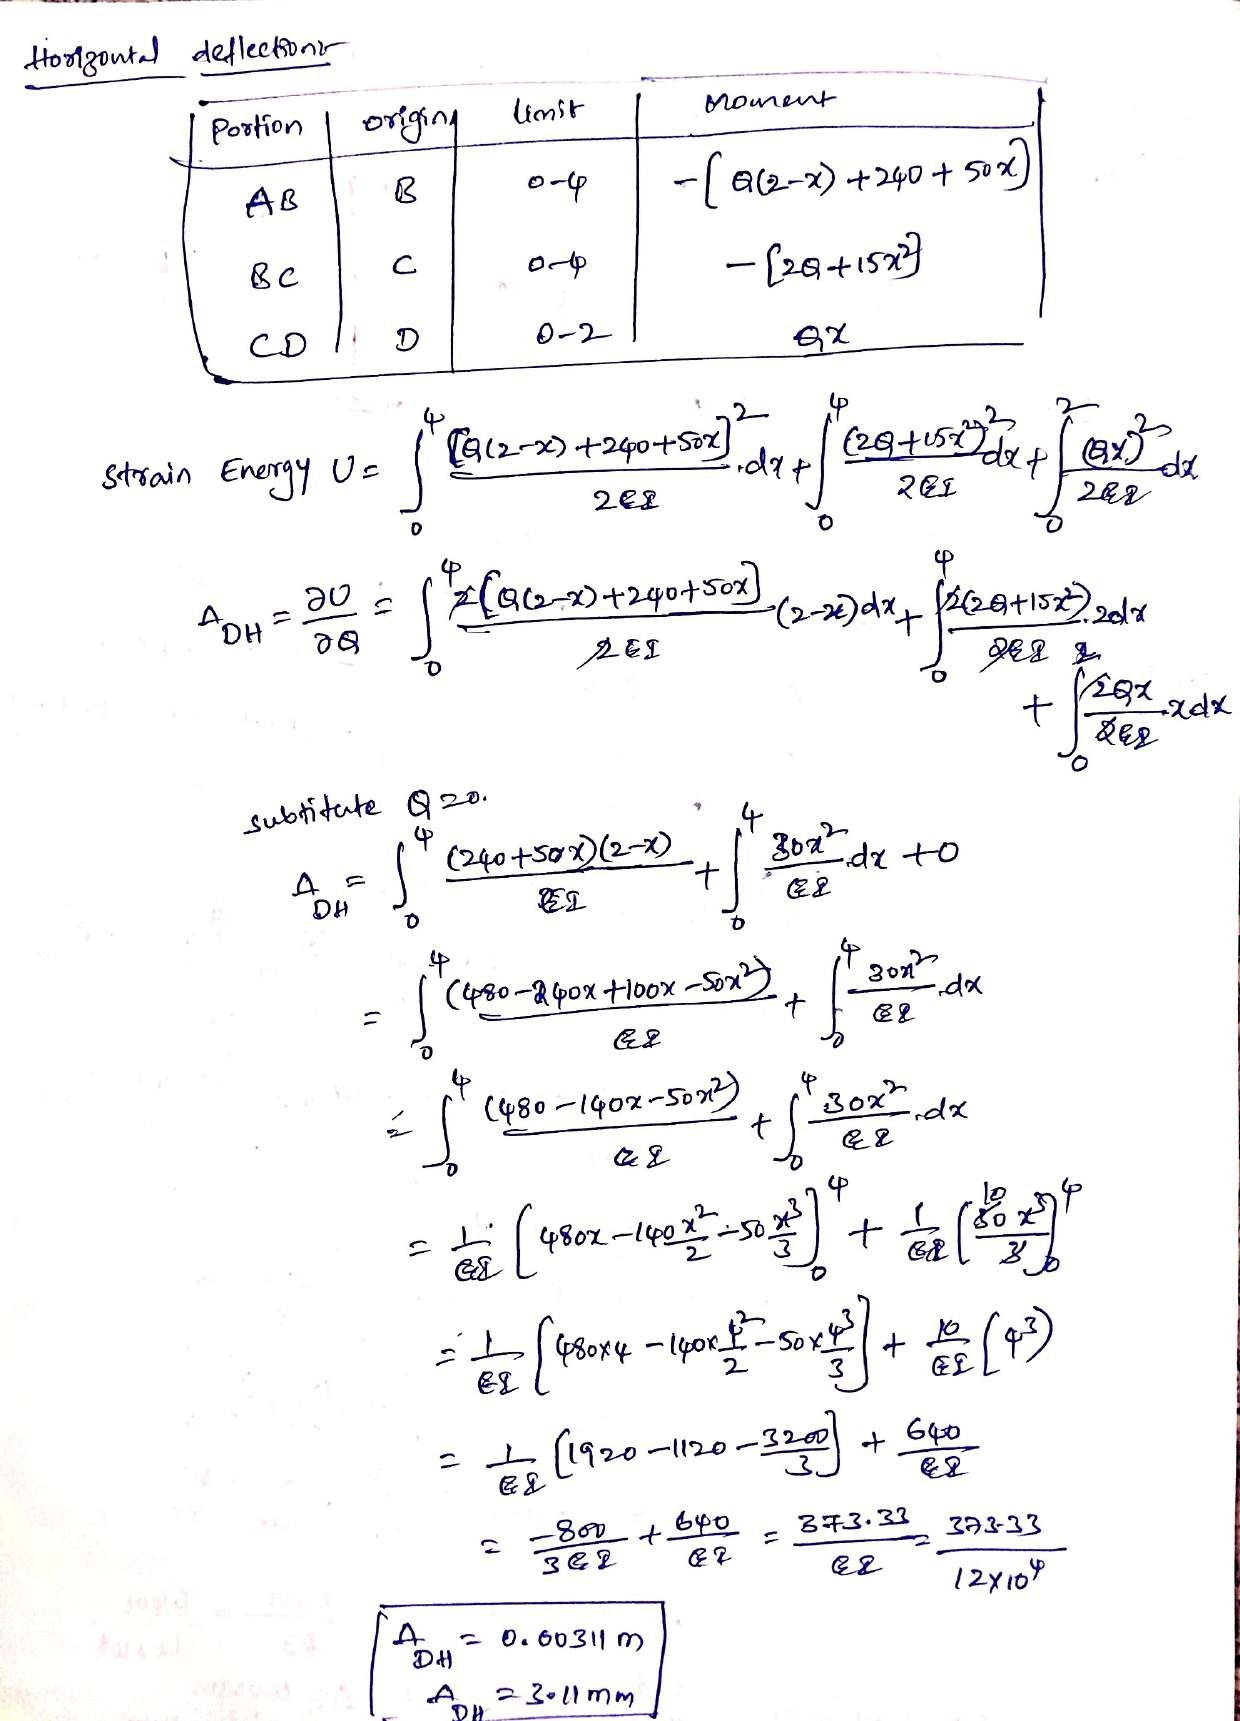 Horizontal deflection:
Portion | origin | limit | Moment
AB | B | 0-4 | -[Q(2-x)+240+50x]
BC | C | 0-4 | -[2Q+15x²]
CD | D | 0-2 | Qx
Strain Energy U = ∫₀⁴ [Q(2-x)+240+50x]²/2EI .dx + ∫₀⁴ (2Q+15x²)²/2EI dx + ∫₀² (Qx)²/2EI dx
Δ_DH = ∂U/∂Q = ∫₀⁴ 2[Q(2-x)+240+50x]/2EI .(2-x)dx + ∫₀⁴ 2(2Q+15x²)/2EI .2dx
+ ∫₀² 2Qx/2EI .xdx
substitute Q=0.
Δ_DH = ∫₀⁴ (240+50x)(2-x)/EI + ∫₀⁴ 30x²/EI .dx +0
= ∫₀⁴ (480-240x+100x-50x²)/EI + ∫₀⁴ 30x²/EI .dx
= ∫₀⁴ (480-140x-50x²)/EI + ∫₀⁴ 30x²/EI .dx
= 1/EI [480x-140 x²/2 -50 x³/3]₀⁴ + 1/EI (10 30 x³/3)₀⁴
= 1/EI [480x4 -140x 4²/2 -50x 4³/3] + 10/EI (4³)
= 1/EI [1920-1120-3200/3] + 640/EI
= -800/3EI + 640/EI = 373.33/EI = 373.33/12x10⁴
Δ_DH = 0.00311 m
Δ_DH = 3.11mm